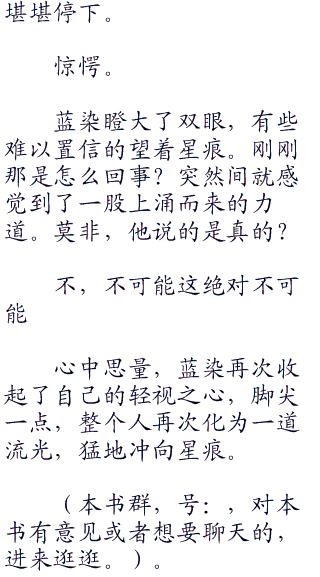 堪堪停下。
惊愕。
蓝染瞪大了双眼，有些
难以置信的望着星痕。刚刚
那是怎么回事？突然间就感
觉到了一股上涌而来的力
道。莫非，他说的是真的？
不，不可能这绝对不可
能
心中思量，蓝染再次收
起了自己的轻视之心，脚尖
一点，整个人再次化为一道
流光，猛地冲向星痕。
（本书群，号：，对本
书有意见或者想要聊天的，
进来逛逛。）。